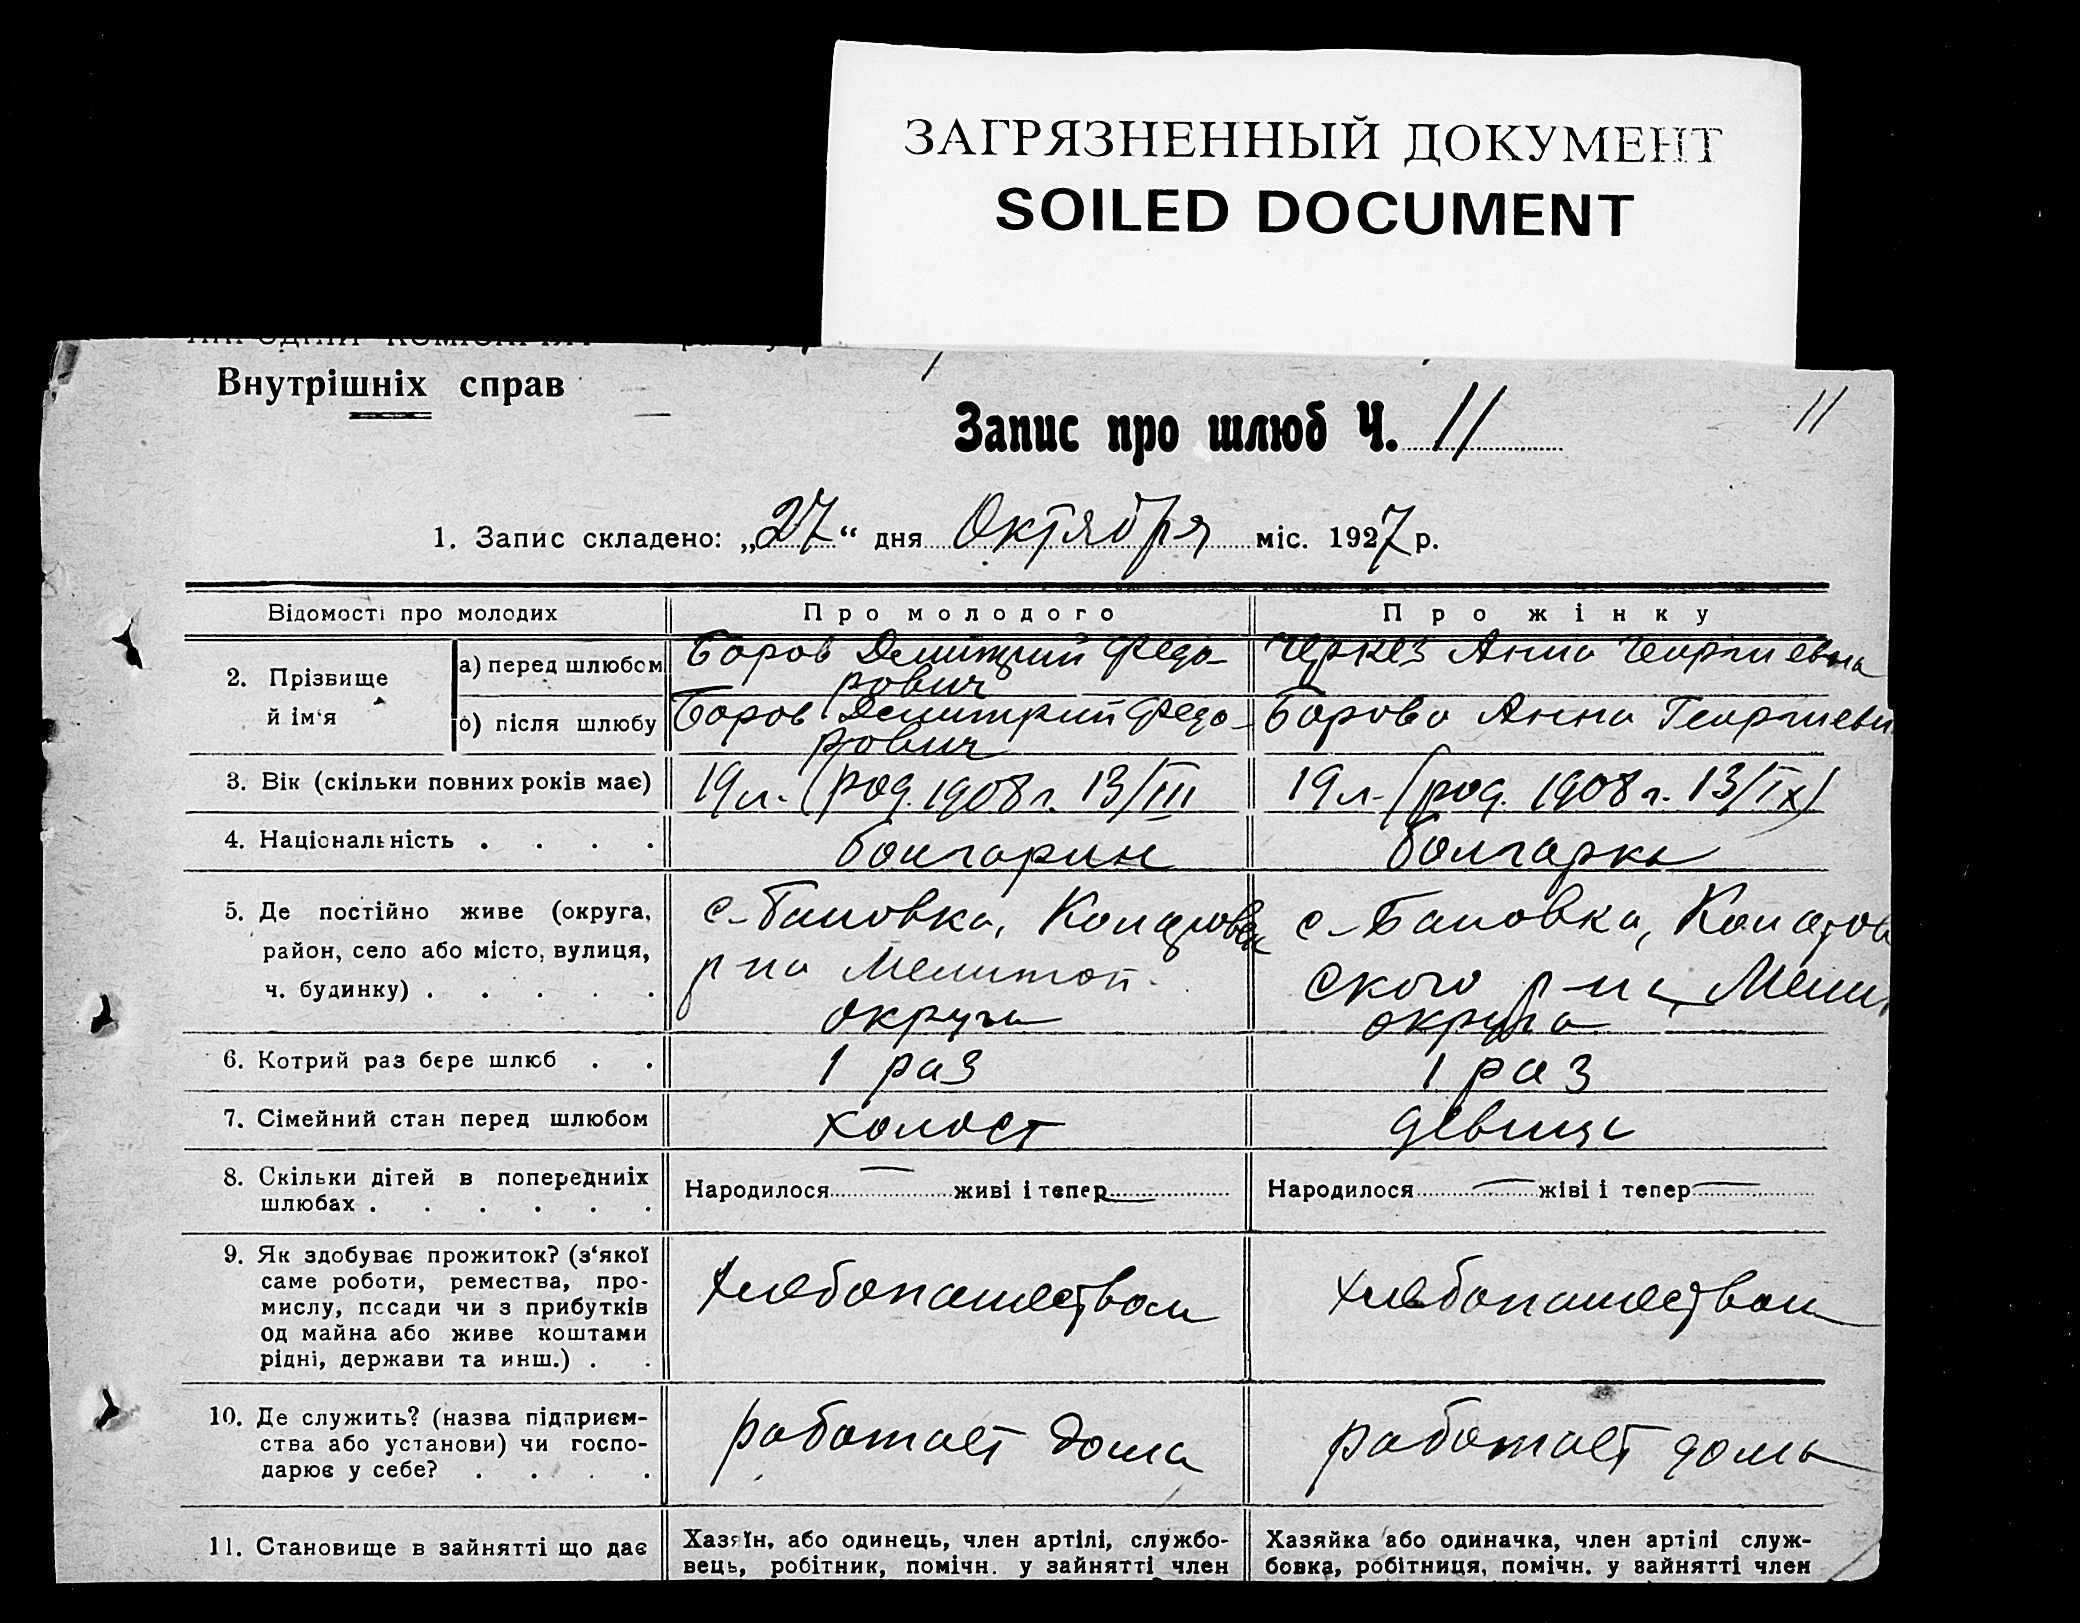 ЗАГРЯЗНЕННЫЙ ДОКУМЕНТ
SOILED DOCUMENT
Внутрішніх справ
Запис про шлюб Ч. 11
11
1. Запис складено: „27“ дня Октября міс. 1927 р.
Відомості про молодих
Про молодого
Про жінку
2. Прізвище й ім‘я
а) перед шлюбом
Боров Дмитрий Федо-
рович
Черкез Анна Георгиевна
б) після шлюбу
Боров Дмитрий Федо-
рович
Борова Анна Георгиевн
3. Вік (скільки повних років має)
19 л. (род. 1908 г. 13/III
19 л. (род. 1908 г. 13/IX)
4. Національність . . . .
болгарин
болгарка
5. Де постійно живе (округа,
район, село або місто, вулиця,
ч. будинку) . . . . .
с-Бановка,
р-на Мелитоп.
округи
с-Бановка,
ского р-на, Мели.
округа
6. Котрий раз бере шлюб . .
1 раз
1 раз
7. Сімейний стан перед шлюбом
холост
девица
8. Скільки дітей в попередниіх
шлюбах . . . . . .
Народилося — живі і тепер —
Народилося — жіві і тепер —
9. Як здобуває прожиток? (з‘якої
саме роботи, ремества, про-
мислу, посади чи з прибутків
од майна або живе коштами
рідні, держави та инш.) . .
хлебопашеством
хлебопашеством
10. Де служить? (назва підприєм-
ства або установи) чи госпо-
дарює у себе? . . . .
работает дома
работает дома
11. Становище в зайнятті що дає
Хазяїн, або одинець, член артілі, службо-
вець, робітник, помічн. у зайнятті член
Хазяйка або одиначка, член артілі служ-
бовка, робітниця, помічн. у зайнятті член